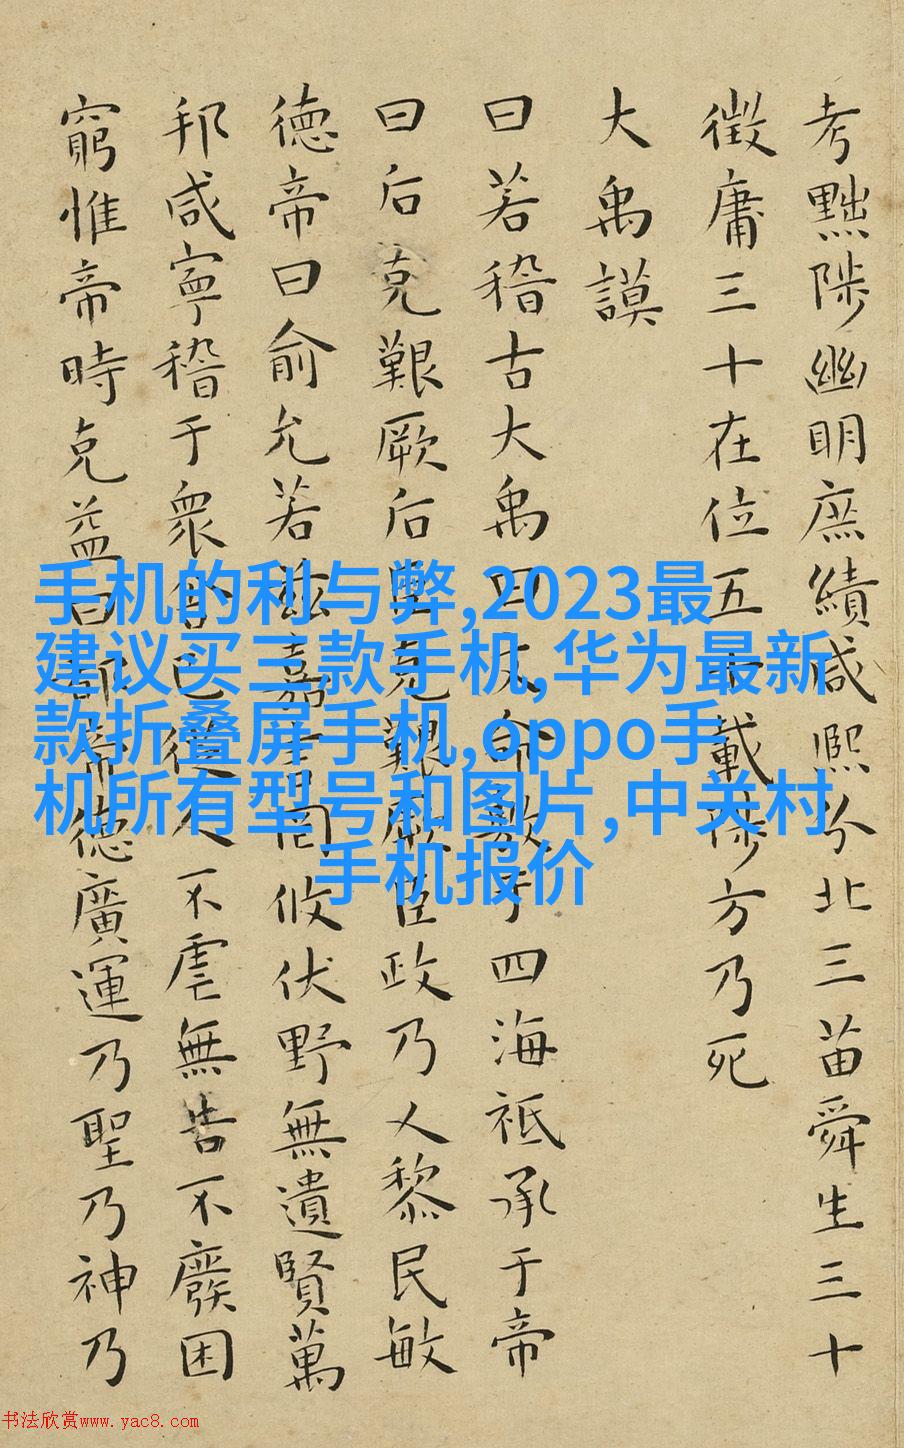 考黜陟幽明庶績咸熙分北三苗舜生三十
徵庸三十在位五十載陟方乃死
大禹謨
曰若稽古大禹曰文命敷于四海祗承于帝
曰后克艱厥后臣克艱厥臣政乃乂黎民敏
德帝曰俞允若茲嘉言罔攸伏野無遺賢萬
邦咸寧稽于衆舍己從人不虐無告不廢困
窮惟帝時克益曰都帝德廣運乃聖乃神乃
手机的利与弊,2023最
建议买三款手机,华为最新
款折叠屏手机,oppo手
机所有型号和图片,中关村
手机报价
书法欣赏www.yac8.com